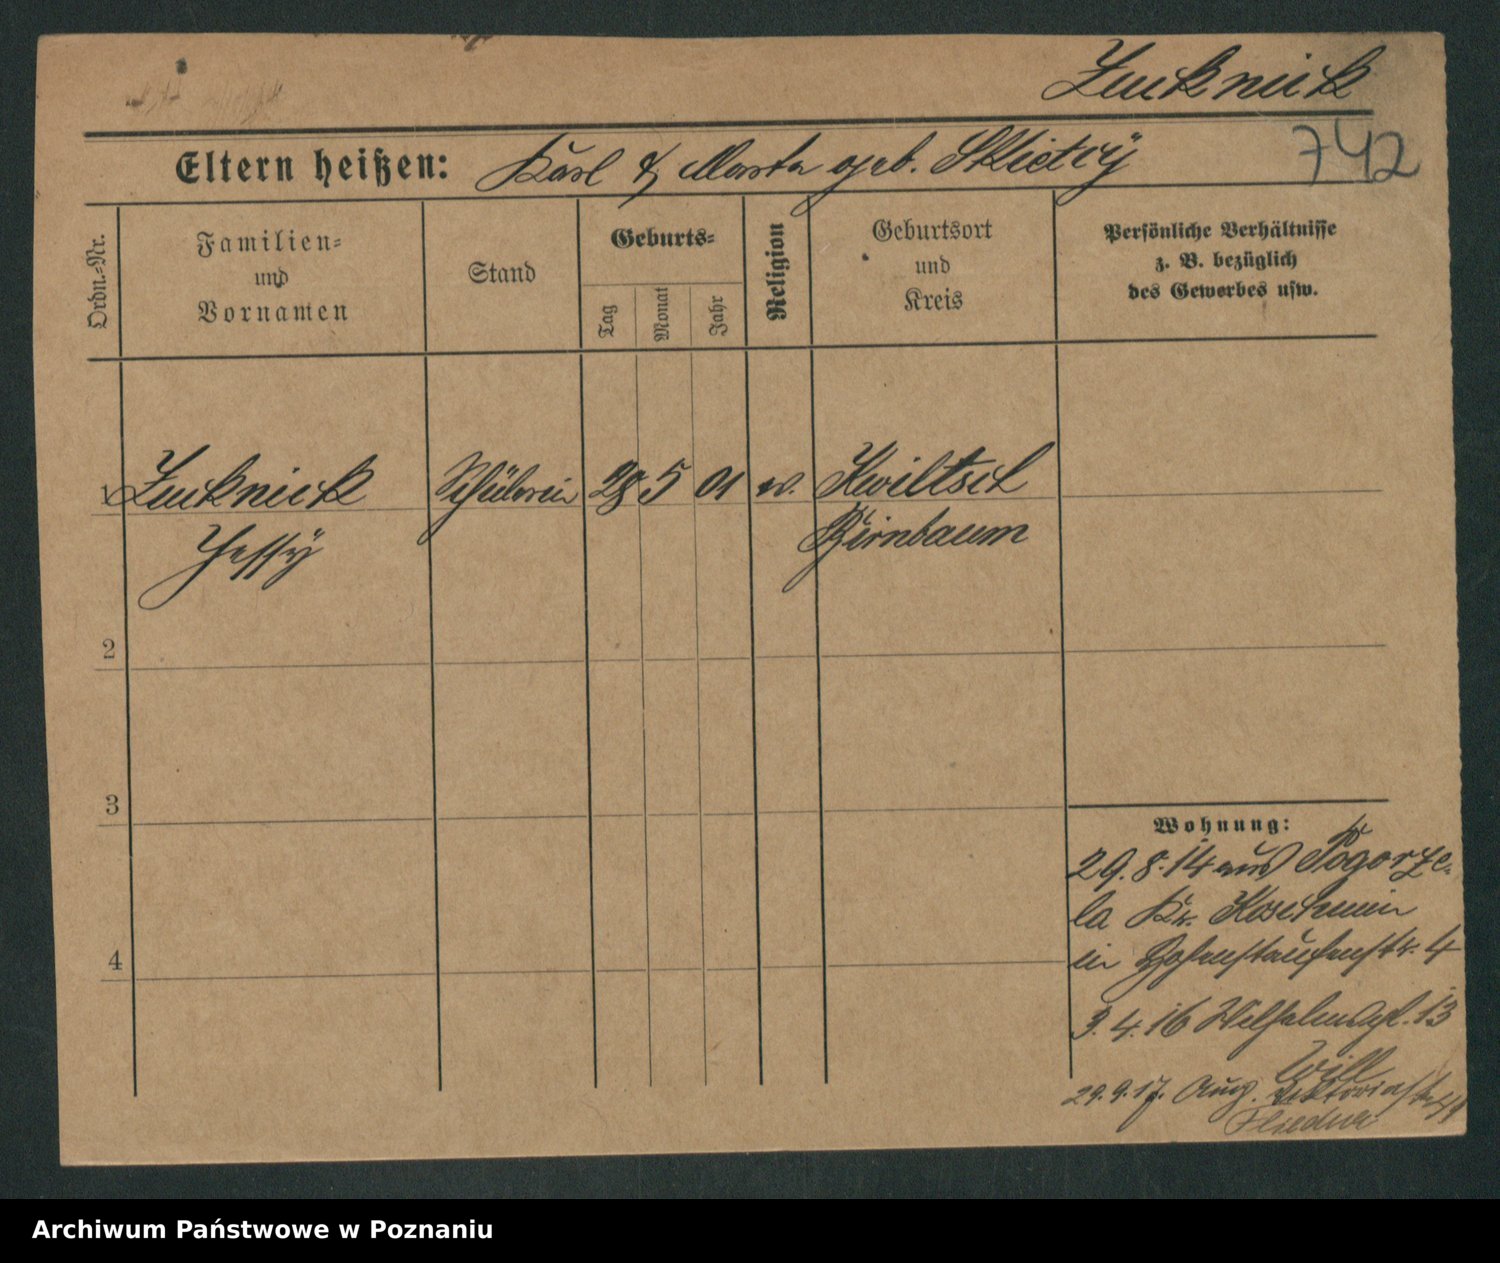 Zucknick
742
Eltern heißen: Karl & Marta geb. Skietry
Ordn.-Nr.
Familien-
und
Vornamen
Stand
Geburts-
Tag
Monat
Jahr
Religion
Geburtsort
und
Kreis
Persönliche Verhältnisse
z. B. bezüglich
des Gewerbes usw.
1 Zucknick Schülerin 28 5 01 ev. Kwiltsch
Birnbaum
2
3
4
Wohnung:
29.8.14 aus Pogorze-
la Kr. Koschmin
in Hohenstaufenstr. 4
3.4.16 Wilhelmspl. 13
Will
29.9.17. Aug. Viktoriastr.
Archiwum Państwowe w Poznaniu